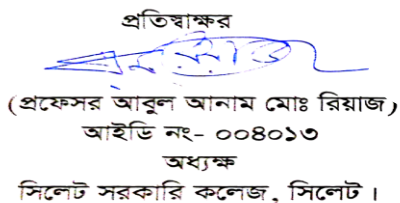 প্রতিস্বাক্ষর
(প্রফেসর আবুল আনাম মোঃ রিয়াজ)
আইডি নং- ০০৪০১৩
অধ্যক্ষ
সিলেট সরকারি কলেজ, সিলেট।